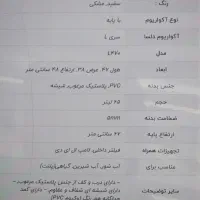 رنگ : سفید، مشکی
نوع آکواریوم با پایه
آکواریوم دلسا سری L
مدل L420
ابعاد طول 42، عرض 28، ارتفاع 48 سانتی متر
جنس بدنه PVC، پلاستیک مرغوب، شیشه
حجم 45 لیتر
ضخامت بدنه 5mm
ارتفاع پایه 62 سانتی متر
تجهیزات همراه فیلتر داخلی، لامپ ال ای دی
مناسب برای آب شور، آب شیرین، گیاهی(پلنت)
- دارای درب و کف از جنس پلاستیک مرغوب،
سایر توضیحات دارای شیشه ای شفاف و مقاوم، - دارای کمد